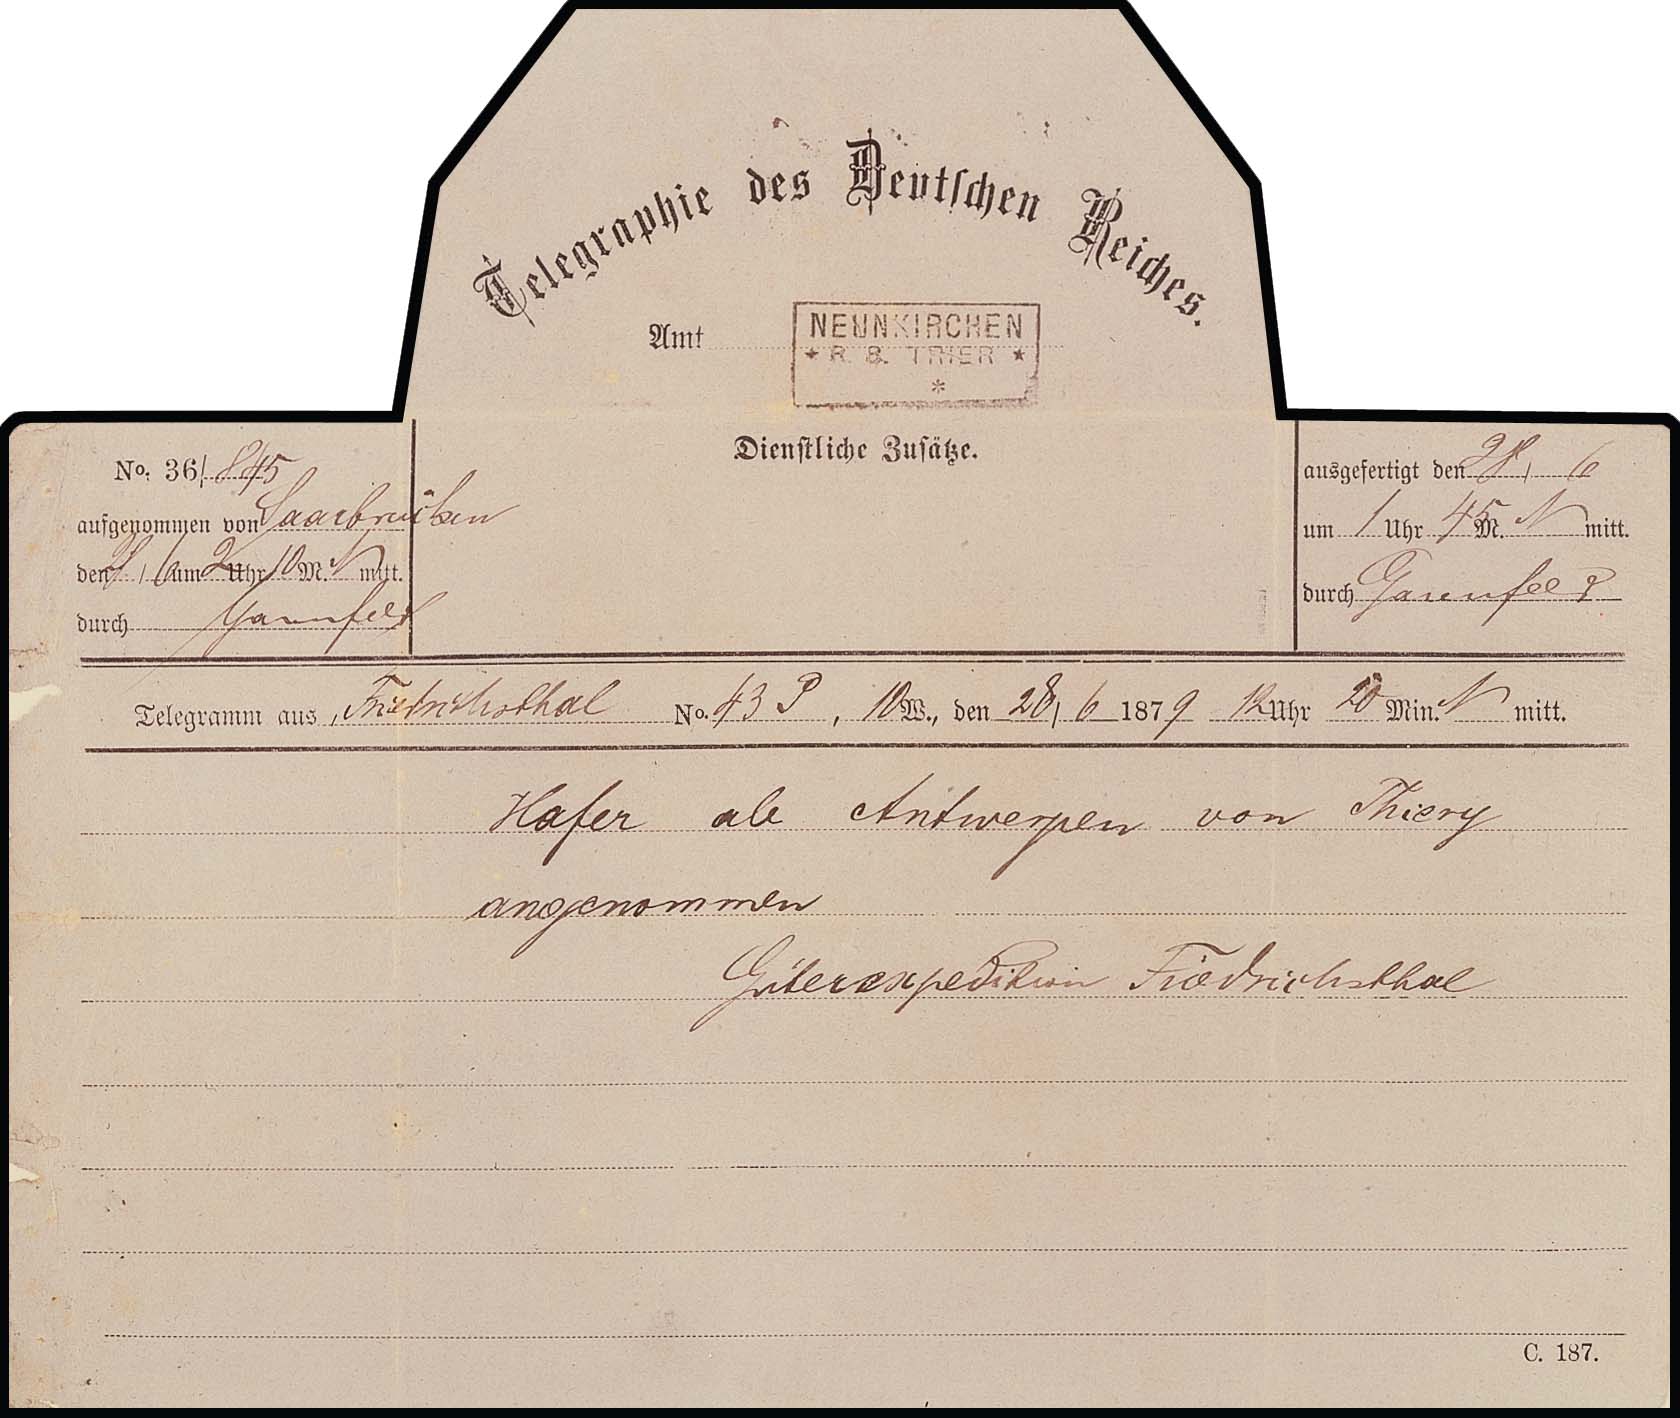 Telegraphie des Deutschen Reiches.
Amt NEUNKIRCHEN
★ R. B. TRIER ★
*
Dienstliche Zusätze.
No. 36/ 845
aufgenommen von Saarbrücken
den / 6 um 2 Uhr 10 M. N mitt.
durch
ausgefertigt den 28/ 6
um 1 Uhr 45 M. N mitt.
durch
Telegramm aus Friedrichsthal No. 43 P, 10 W., den 28/ 6 1879 12 Uhr 20 Min. N mitt.
Hafer ab Antwerpen von Thiery
angenommen
Güterexpedition Friedrichsthal
C. 187.